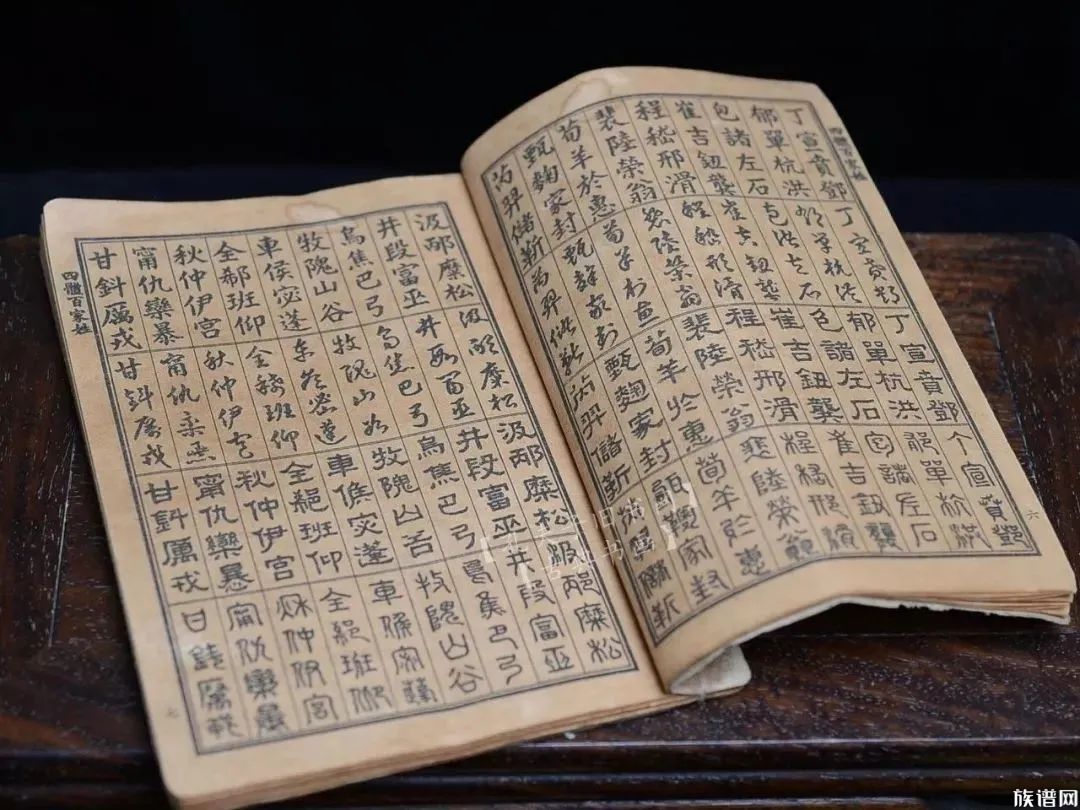 四體百家姓
丁宣賁鄧 丁宣賁鄧 丁宣賁鄧 丁宣賁鄧
郁單杭洪 郁單杭洪 郁單杭洪 郁單杭洪
包諸左石 包諸左石 包諸左石 包諸左石
崔吉鈕龔 崔吉鈕龔 崔吉鈕龔 崔吉鈕龔
程嵇邢滑 程嵇邢滑 程嵇邢滑 程嵇邢滑
裴陸榮翁 裴陸榮翁 裴陸榮翁 裴陸榮翁
荀羊於惠 荀羊於惠 荀羊於惠 荀羊於惠
甄麴家封 甄麴家封 甄麴家封 甄麴家封
芮羿儲靳 芮羿儲靳 芮羿儲靳 芮羿儲靳
六
汲邴糜松 汲邴糜松 汲邴糜松 汲邴糜松
井段富巫 井段富巫 井段富巫 井段富巫
烏焦巴弓 烏焦巴弓 烏焦巴弓 烏焦巴弓
牧隗山谷 牧隗山谷 牧隗山谷 牧隗山谷
車侯宓蓬 車侯宓蓬 車侯宓蓬 車侯宓蓬
全郗班仰 全郗班仰 全郗班仰 全郗班仰
秋仲伊宮 秋仲伊宮 秋仲伊宮 秋仲伊宮
甯仇欒暴 甯仇欒暴 甯仇欒暴 甯仇欒暴
甘鈄厲戎 甘鈄厲戎 甘鈄厲戎 甘鈄厲戎
四體百家姓
七
族谱网